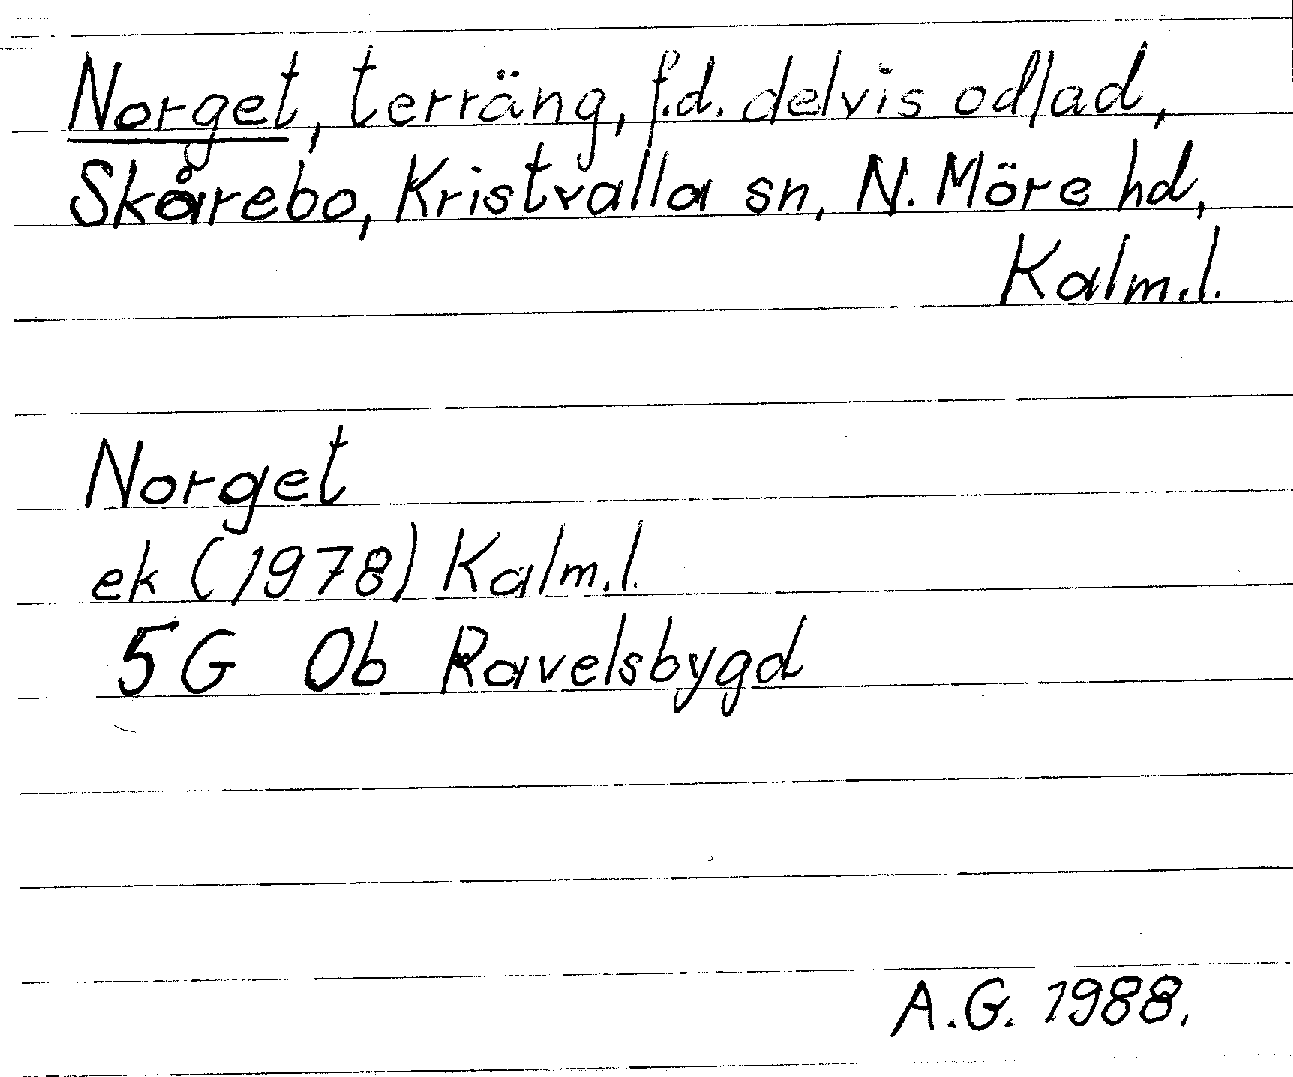 Norget, terräng, f.d. delvis odlad,
Skårebo, Kristvalla sn, N. Möre hd,
Kalm.l.
Norget
ek (1978) Kalm.l.
5G 0b Ravelsbygd
A.G. 1988.